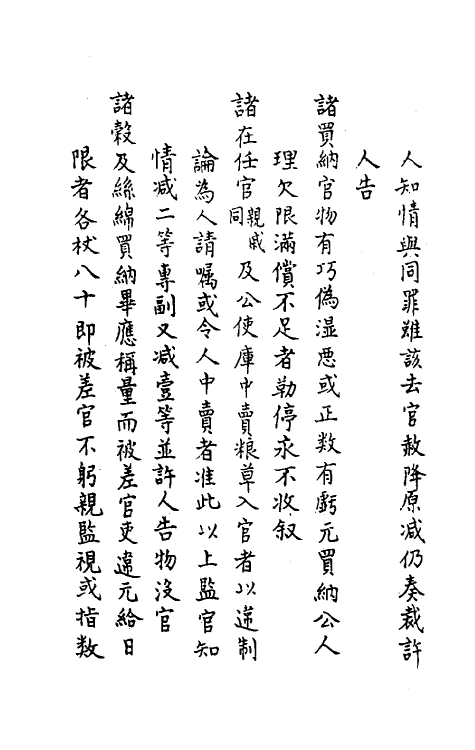 人知情與同罪雖該去官赦降原减仍奏裁許
人告
諸買納官物有巧偽濕惡或正数有虧元買納公人
理欠限滿償不足者勒停永不收叙
諸在任官親戚同及公使庫中賣粮草入官者以違制
論為人請嘱或令人中賣者准此以上監官知
情减二等專副又减壹等並許人告物没官
諸穀及絲綿買納畢應稱量而被差官吏違元給日
限者各杖八十即被差官不躬親監視或指数